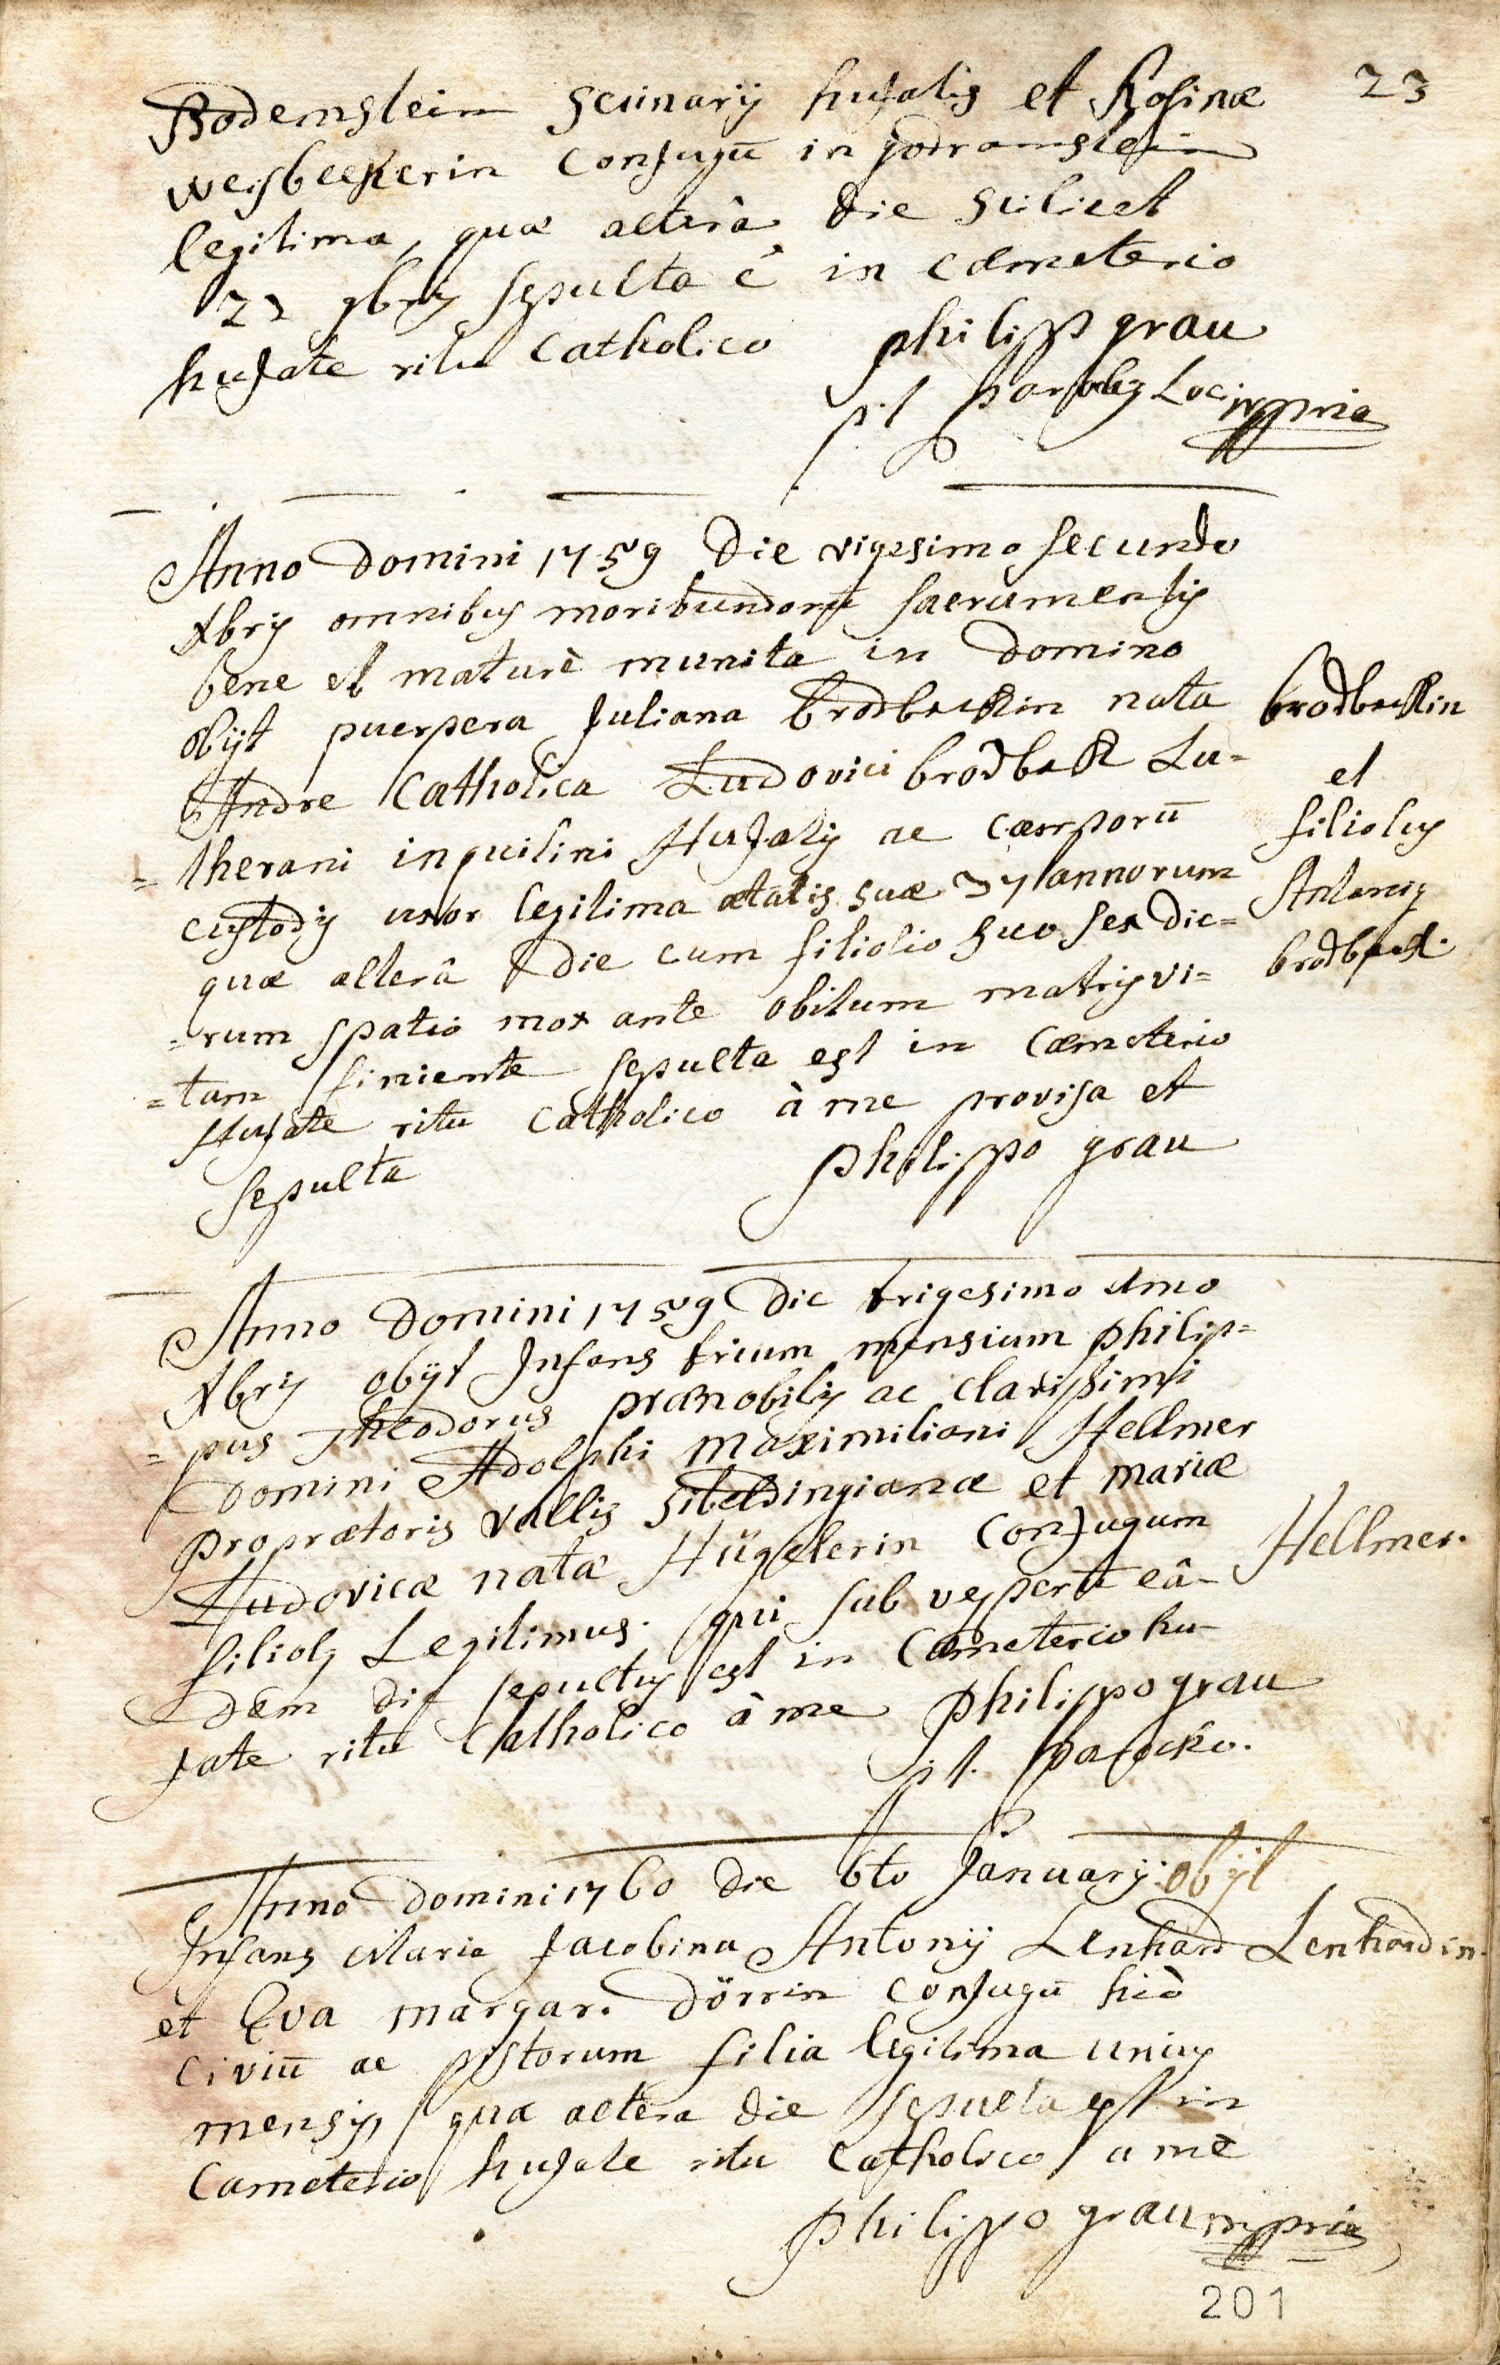 23
Bodemstein scrinarÿ hujatis et Rosinæ
weisbeckerin conjugū in godramstein
legitima, quæ alterâ die scilicet
22 9bris sepulta ē in cæmeterio
hujate ritu Catholico philipp grau
p:t parochg Loci mppria
Anno Domini 1759 Die vigesimo secundo
Xbris omnibus moribundorū sacramentis
bene et maturè munita in Domino
obÿt puerpera Juliana brodbeckin nata
Andre Catholica Ludovici brodbeck Lu-
=therani inquilini Hujatis ac camporū
custodis uxor legitima ætatis suæ 37 annorum
quæ alterâ die cum filiolio suo sex die=
=rum spatio mox ante obitum matris vi=
=tam finiente sepulta est in Cæmeterio
Hujate ritu Catholico à me provisa et
sepulta philippo grau
brodbeckin
et
filiolus
Antonig
brodbeck.
Anno Domini 1759 Die trigesimo imo
Xbris obÿt Infans trium mensium philip=
=pus Theodorus prænobilis ac clarissimi
Domini Adolphi Maximiliani Hellmer
proprætoris vallis sibeldingianæ et mariæ
Ludovicæ natæ Hügelerin Conjugum
filiolg Legitimus. qui sub vespertâ eâ-
Dem die sepultus est in Cæmeterio hu-
jate ritu Catholico à me philippo grau
p.t. parocho.
Hellmer.
Anno Domini 1760 die 6to Januarÿ: obÿt
Infans Maria Jacobina Antonÿ Lenhard
et Eva margar. Dörrin conjugū hic
civiū ac pistorum filia legitima unius
mensis, quæ altera die sepulta est in
Cæmeterio hujate ritu Catholico a me
philippo grau mppria
Lenhardin.
201